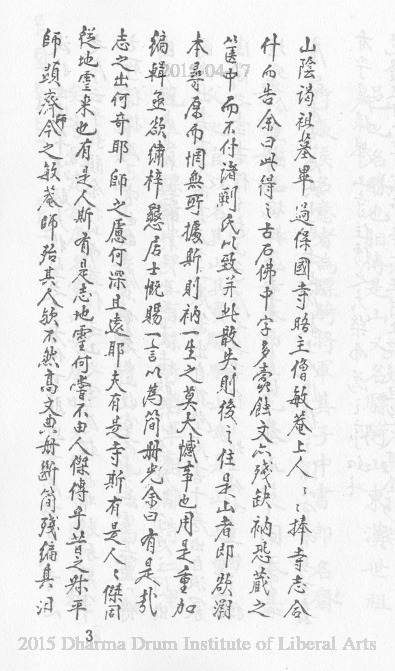 山陰謁祖墓畢過保國寺晤主僧敏菴上人〻捧寺志合
什而告余曰此得之古石佛中字多蠹蝕文亦殘缺衲恐藏之
篋中而不付諸剞氏以致并此散失則後之住是山者即欲溯
本尋原而惘無所據斯則衲一生之莫大憾事也用是重加
編輯亟欲繡梓懇居士慨賜一言以為簡册光余曰有是哉
志之出何奇耶師之慮何深且遠耶夫有是寺斯有是人〻傑固
從地靈来也有是人斯有是志地靈何嘗不由人傑傳乎昔之
師頭齊師今之敏菴師殆其人欤不然高文典册斷簡殘編具汩
2015-04-17
3
2015 Dharma Drum Institute of Liberal Arts